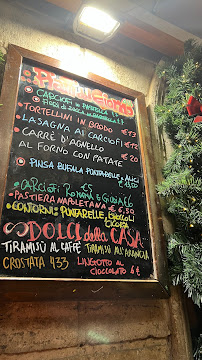 CARCIOFI IN PASTELLA €5
FIORI DI ZUCCA IN PASTELLA €5
TORTELLINI IN BRODO €13
LASAGNA AI CARCIOFI €12
CARRÈ D'AGNELLO
AL FORNO CON PATATE €20
PINSA BUFALA PUNTARELLE E ALICI
CARCIOFI ROMANA E GIUDIA €6
PASTIERA NAPOLETANA € 6,50
CONTORNI: PUNTARELLE, BROCCOLI
CICORIA
DOLCI della CASA:
TIRAMISÙ AL CAFFÈ TIRAMISÙ ALL'ARANCIA
CROSTATA LINGOTTO AL
CIOCCOLATO 6€